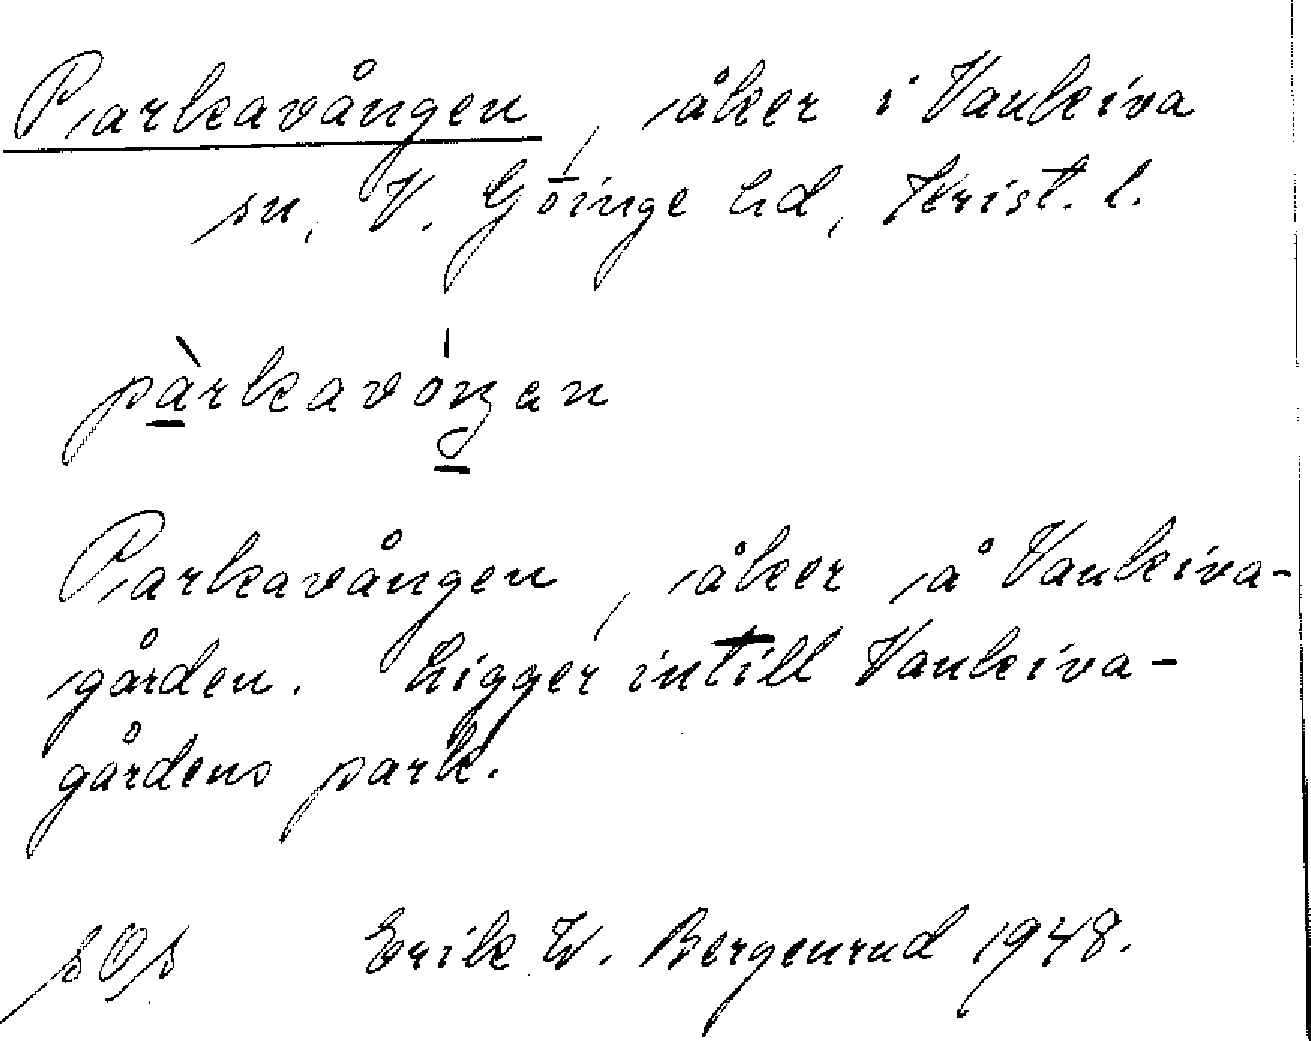 Parkavången, åker i Vankiva
sn, V. Göinge hd, Krist. l.
pàrkavóŋən
Parkavången, åker å Vankiva-
gården. Ligger intill Vankiva-
gårdens park.
Erik W. Bergenrud 1948.